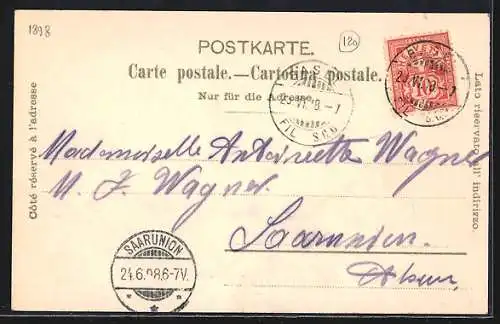 1898
120
POSTKARTE.
Carte postale.—Cartolina postale.
Nur für die Adresse.
Côté réservé à l'adresse
Lato riservato all' indirizzo
10
FIL. S.G.D.
Mademoiselle Antoinette Wagner
M. J. Wagner
Saarunion
Alsace
SAARUNION
24.6.98.6-7V.